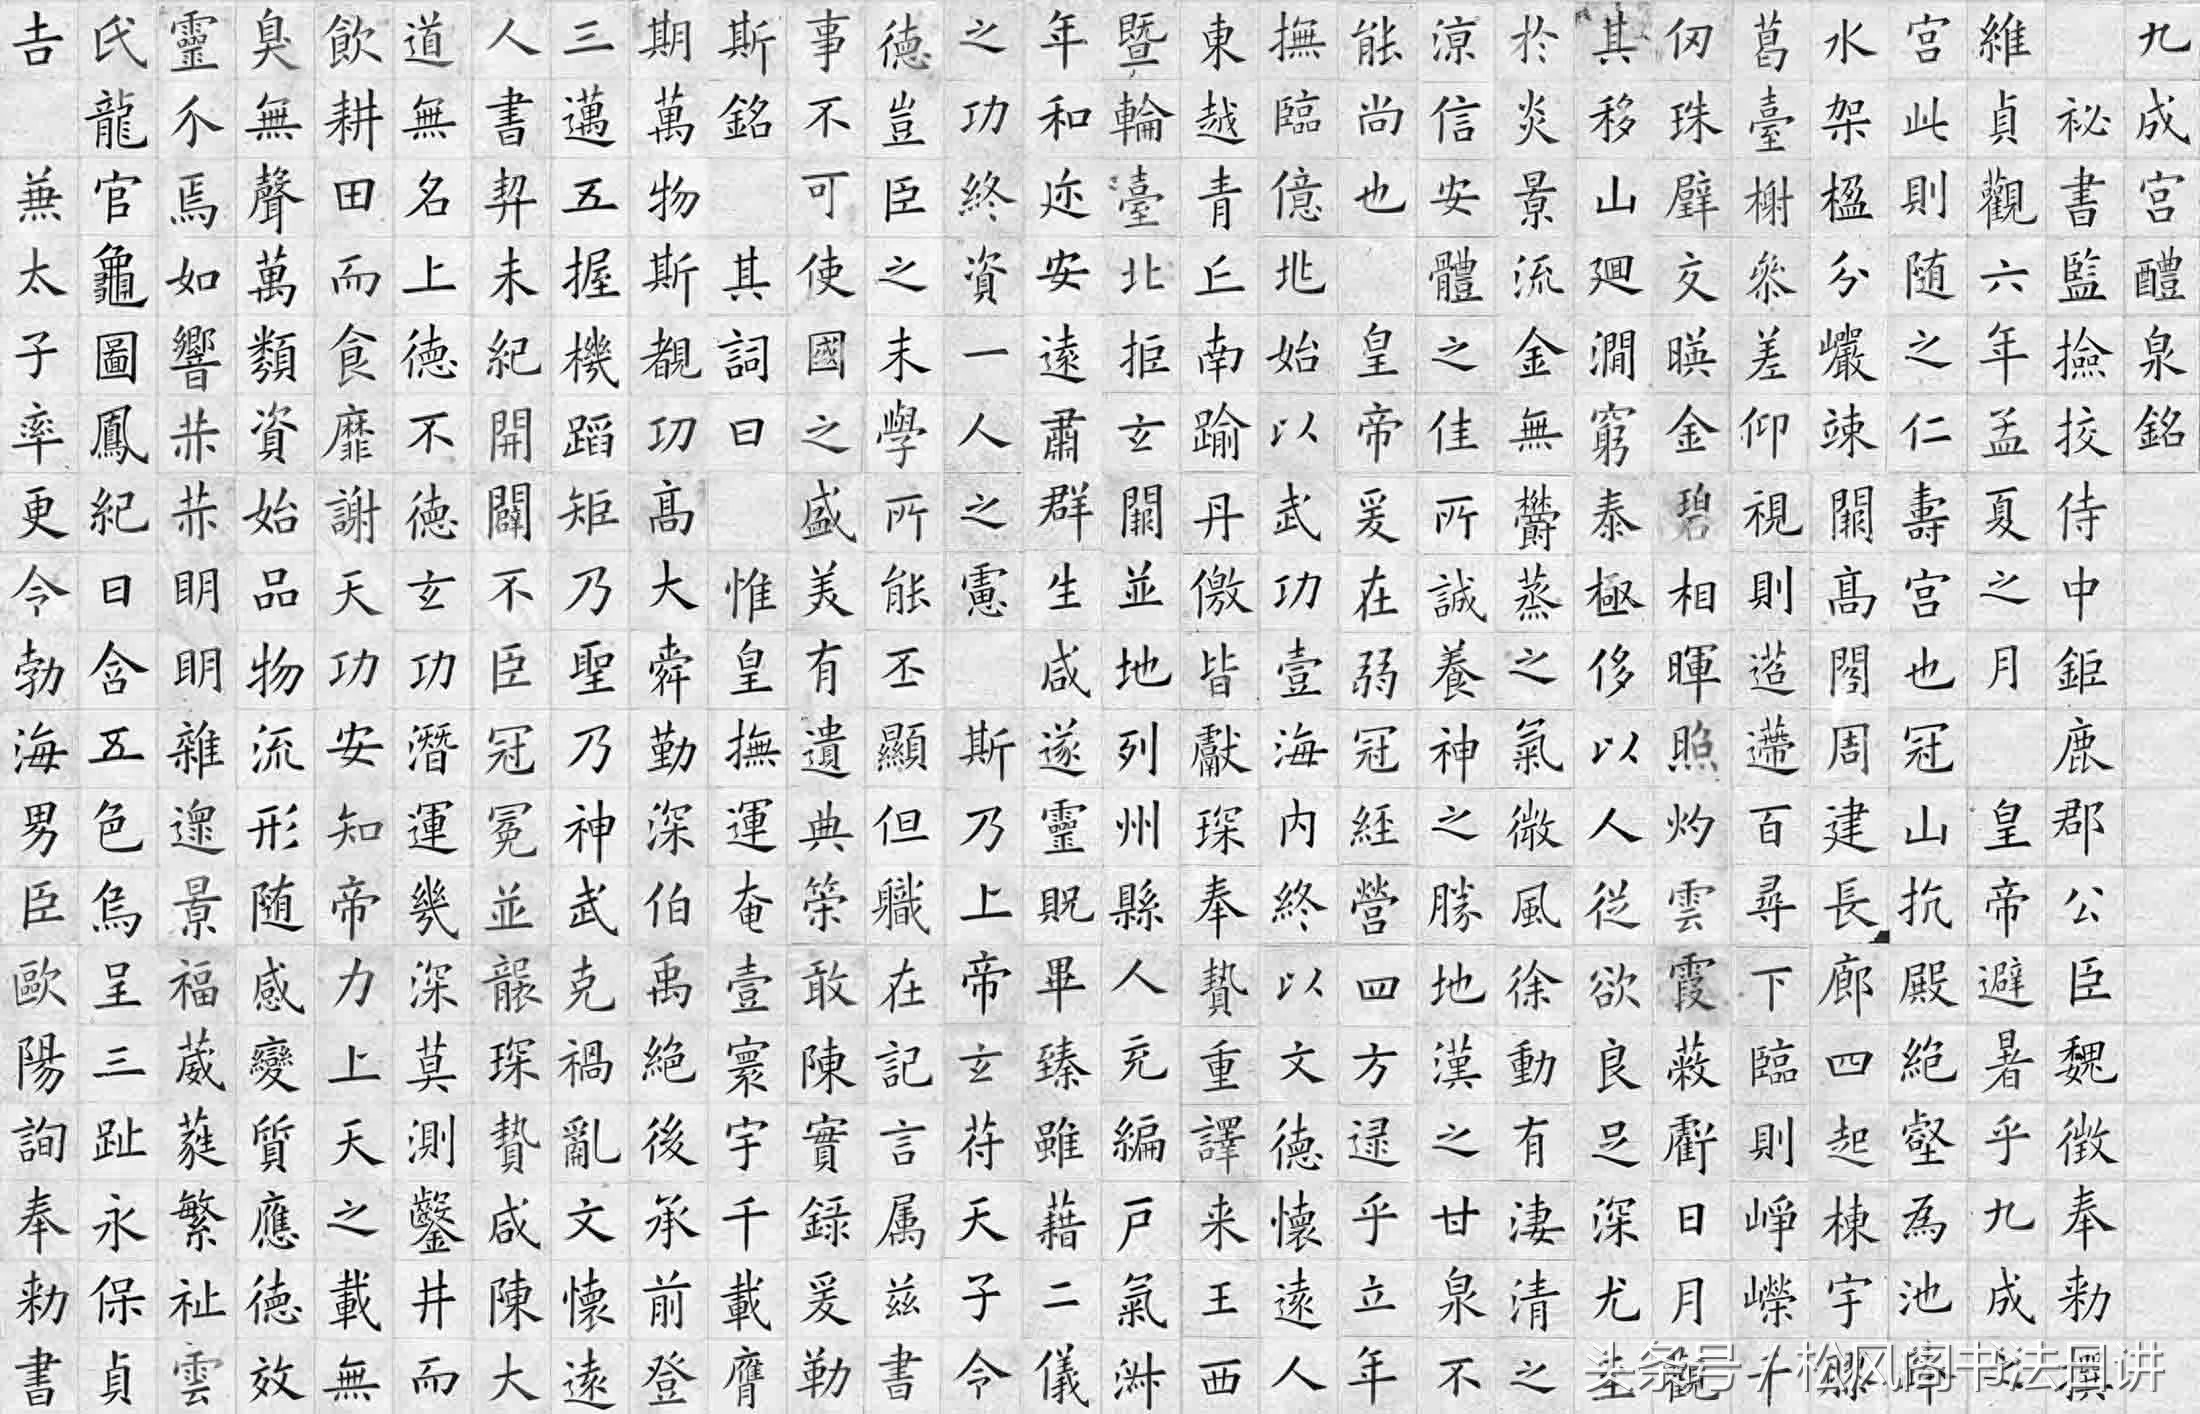 九成宮醴泉銘
祕書監撿挍侍中鉅鹿郡公臣魏徵奉勅撰
維貞觀六年孟夏之月 皇帝避暑乎九成
宮此則随之仁壽宮也冠山抗殿絕壑為池
水架楹分巖竦闕高閣周建長廊四起棟宇膠
葛臺榭參差仰視則迢遰百尋下臨則崢嶸千
仞珠璧交暎金碧相暉照灼雲霞蔽虧日月觀
其移山廻澗窮泰極侈以人從欲良足深尤至
於炎景流金無鬱蒸之氣微風徐動有淒清之
涼信安體之佳所誠養神之勝地漢之甘泉不
能尚也 皇帝爰在弱冠經營四方逮乎立年
撫臨億兆始以武功壹海內終以文德懷遠人
東越青丘南踰丹儌皆獻琛奉贄重譯来王西
暨輪臺北拒玄闕並地列州縣人充編戶氣淑
年和迩安遠肅群生咸遂靈貺畢臻雖藉二儀
之功終資一人之慮 斯乃上帝玄符天子令
德豈臣之末學所能丕顯但職在記言属茲書
事不可使國之盛美有遺典策敢陳實録爰勒
斯銘 其詞曰 惟皇撫運奄壹寰宇千載膺
期萬物斯覩功高大舜勤深伯禹絕後承前登
三邁五握機蹈矩乃聖乃神武克禍亂文懷遠
人書契未紀開闢不臣冠冕並襲琛贄咸陳大
道無名上德不德玄功潛運幾深莫測鑿井而
飲耕田而食靡謝天功安知帝力上天之載無
臭無聲萬類資始品物流形随感變質應德效
靈介焉如響赫赫明明雜遝景福葳蕤繁祉雲
氏龍官龜圖鳳紀日含五色烏呈三趾永保貞
吉 兼太子率更令勃海男臣歐陽詢奉勅書
头条号 / 松风阁书法日讲